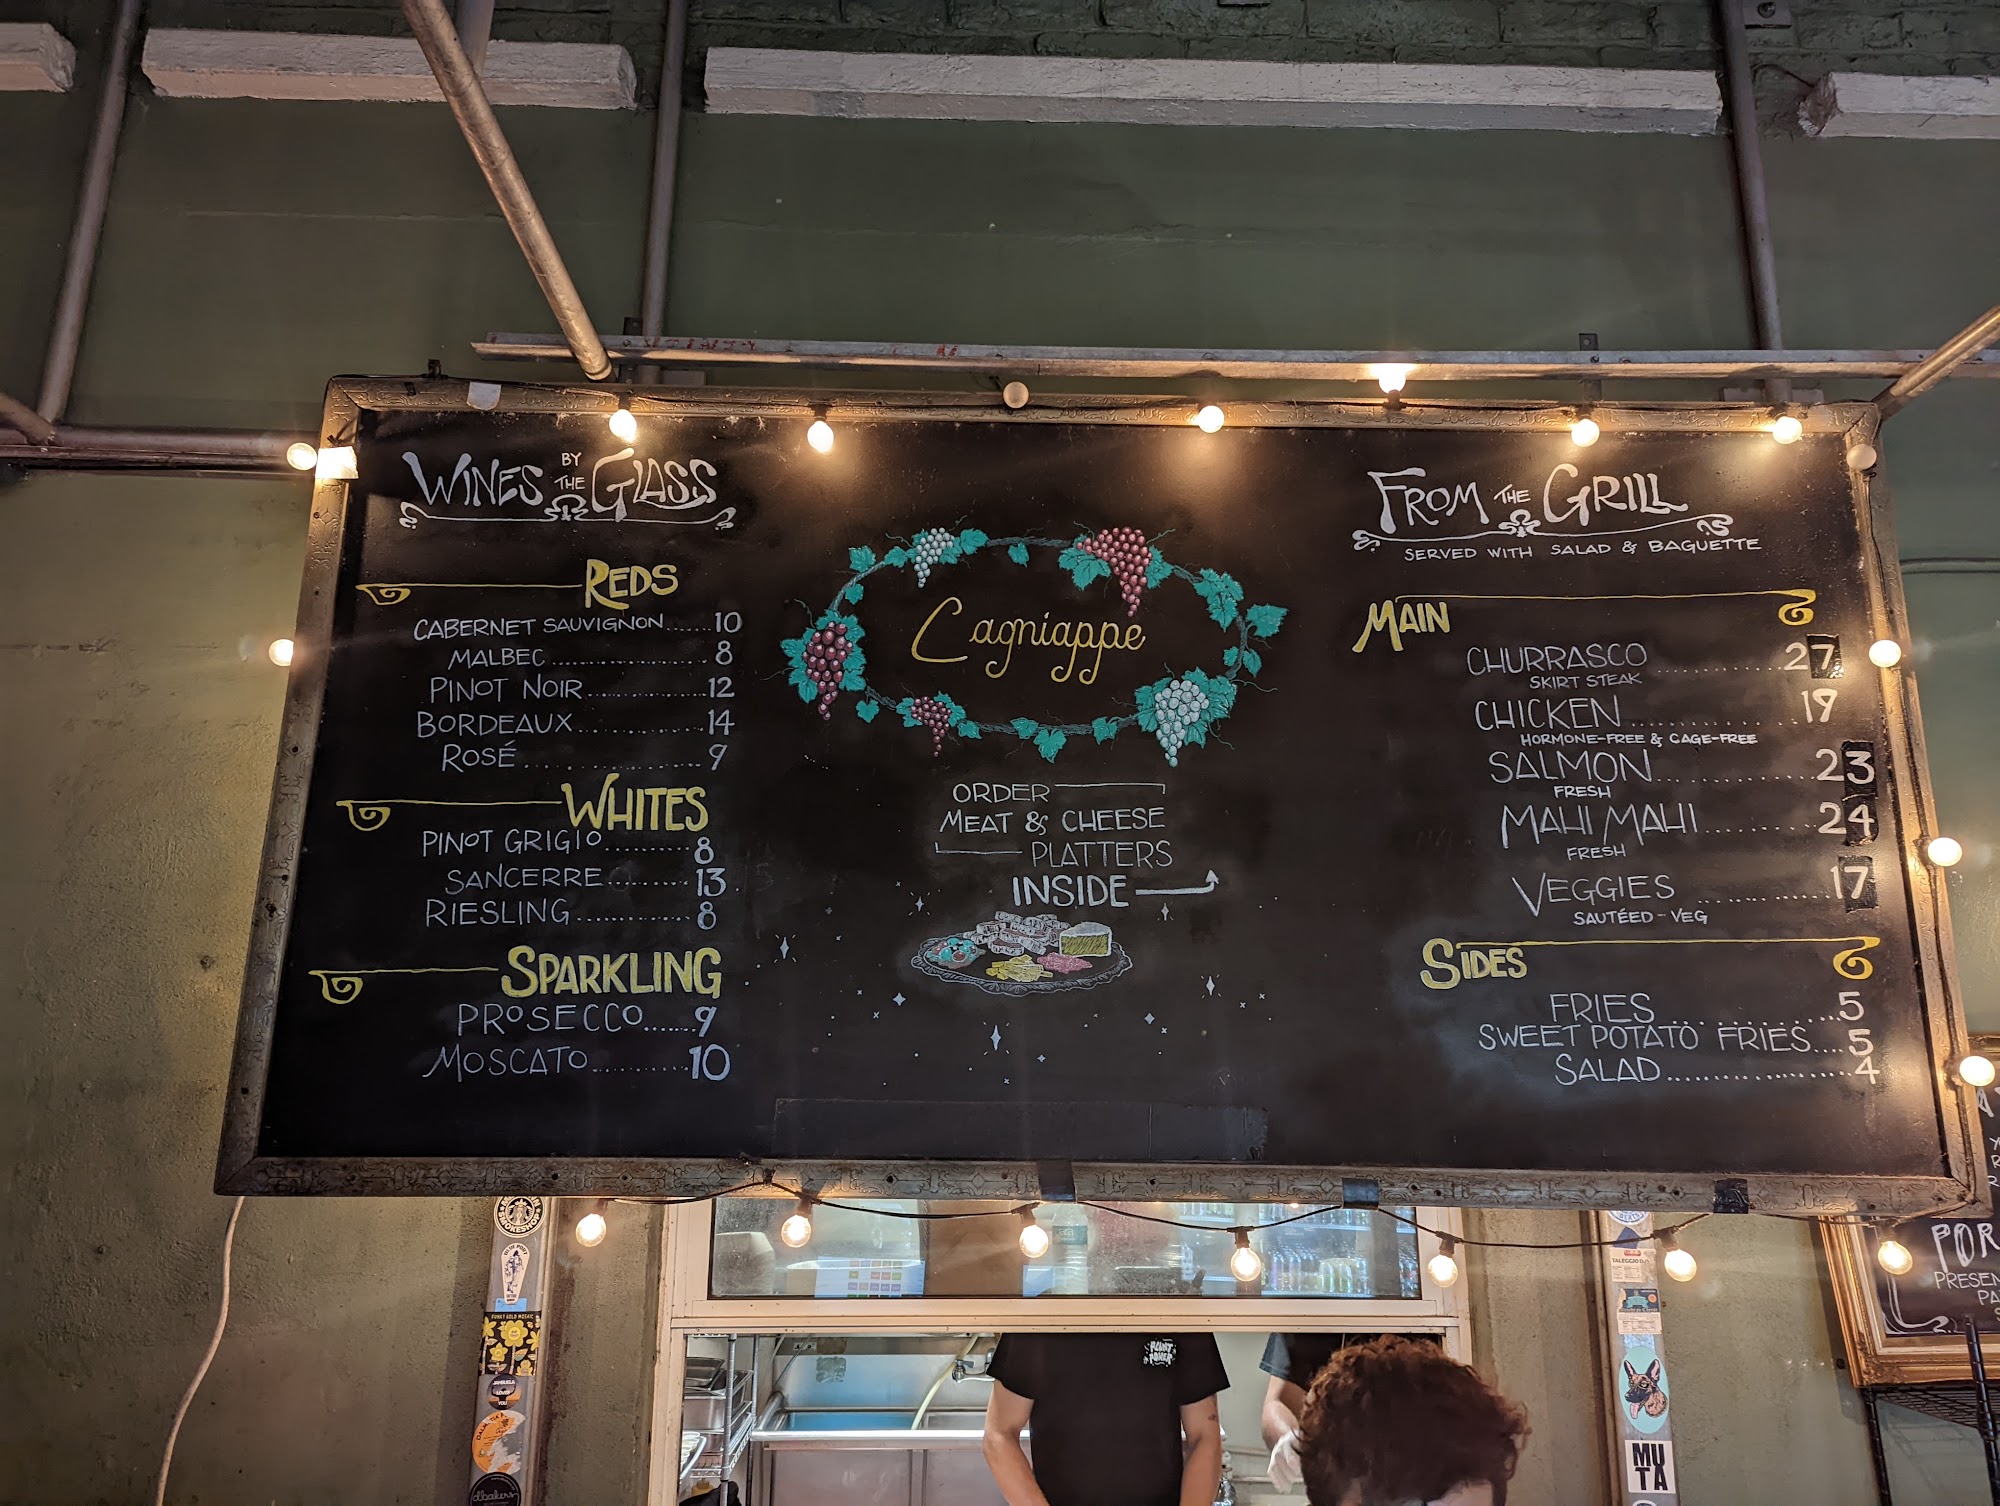 WINES BY THE GLASS
REDS
CABERNET SAUVIGNON......10
MALBEC..................8
PINOT NOIR..............12
BORDEAUX................14
ROSÉ....................9
WHITES
PINOT GRIGIO..........8
SANCERRE........13
RIESLING............8
SPARKLING
PROSECCO......9
MOSCATO...........10
Cagniappe
ORDER
MEAT & CHEESE
PLATTERS
INSIDE
FROM THE GRILL
SERVED WITH SALAD & BAGUETTE
MAIN
CHURRASCO..............27
SKIRT STEAK
CHICKEN................19
HORMONE-FREE & CAGE-FREE
SALMON................23
FRESH
MAHI MAHI.............24
FRESH
VEGGIES...............17
SAUTÉED-VEG
SIDES
FRIES..............5
SWEET POTATO FRIES....5
SALAD..................4
POR
PRESEN
PA
S
TALEGGIO
MU
TA